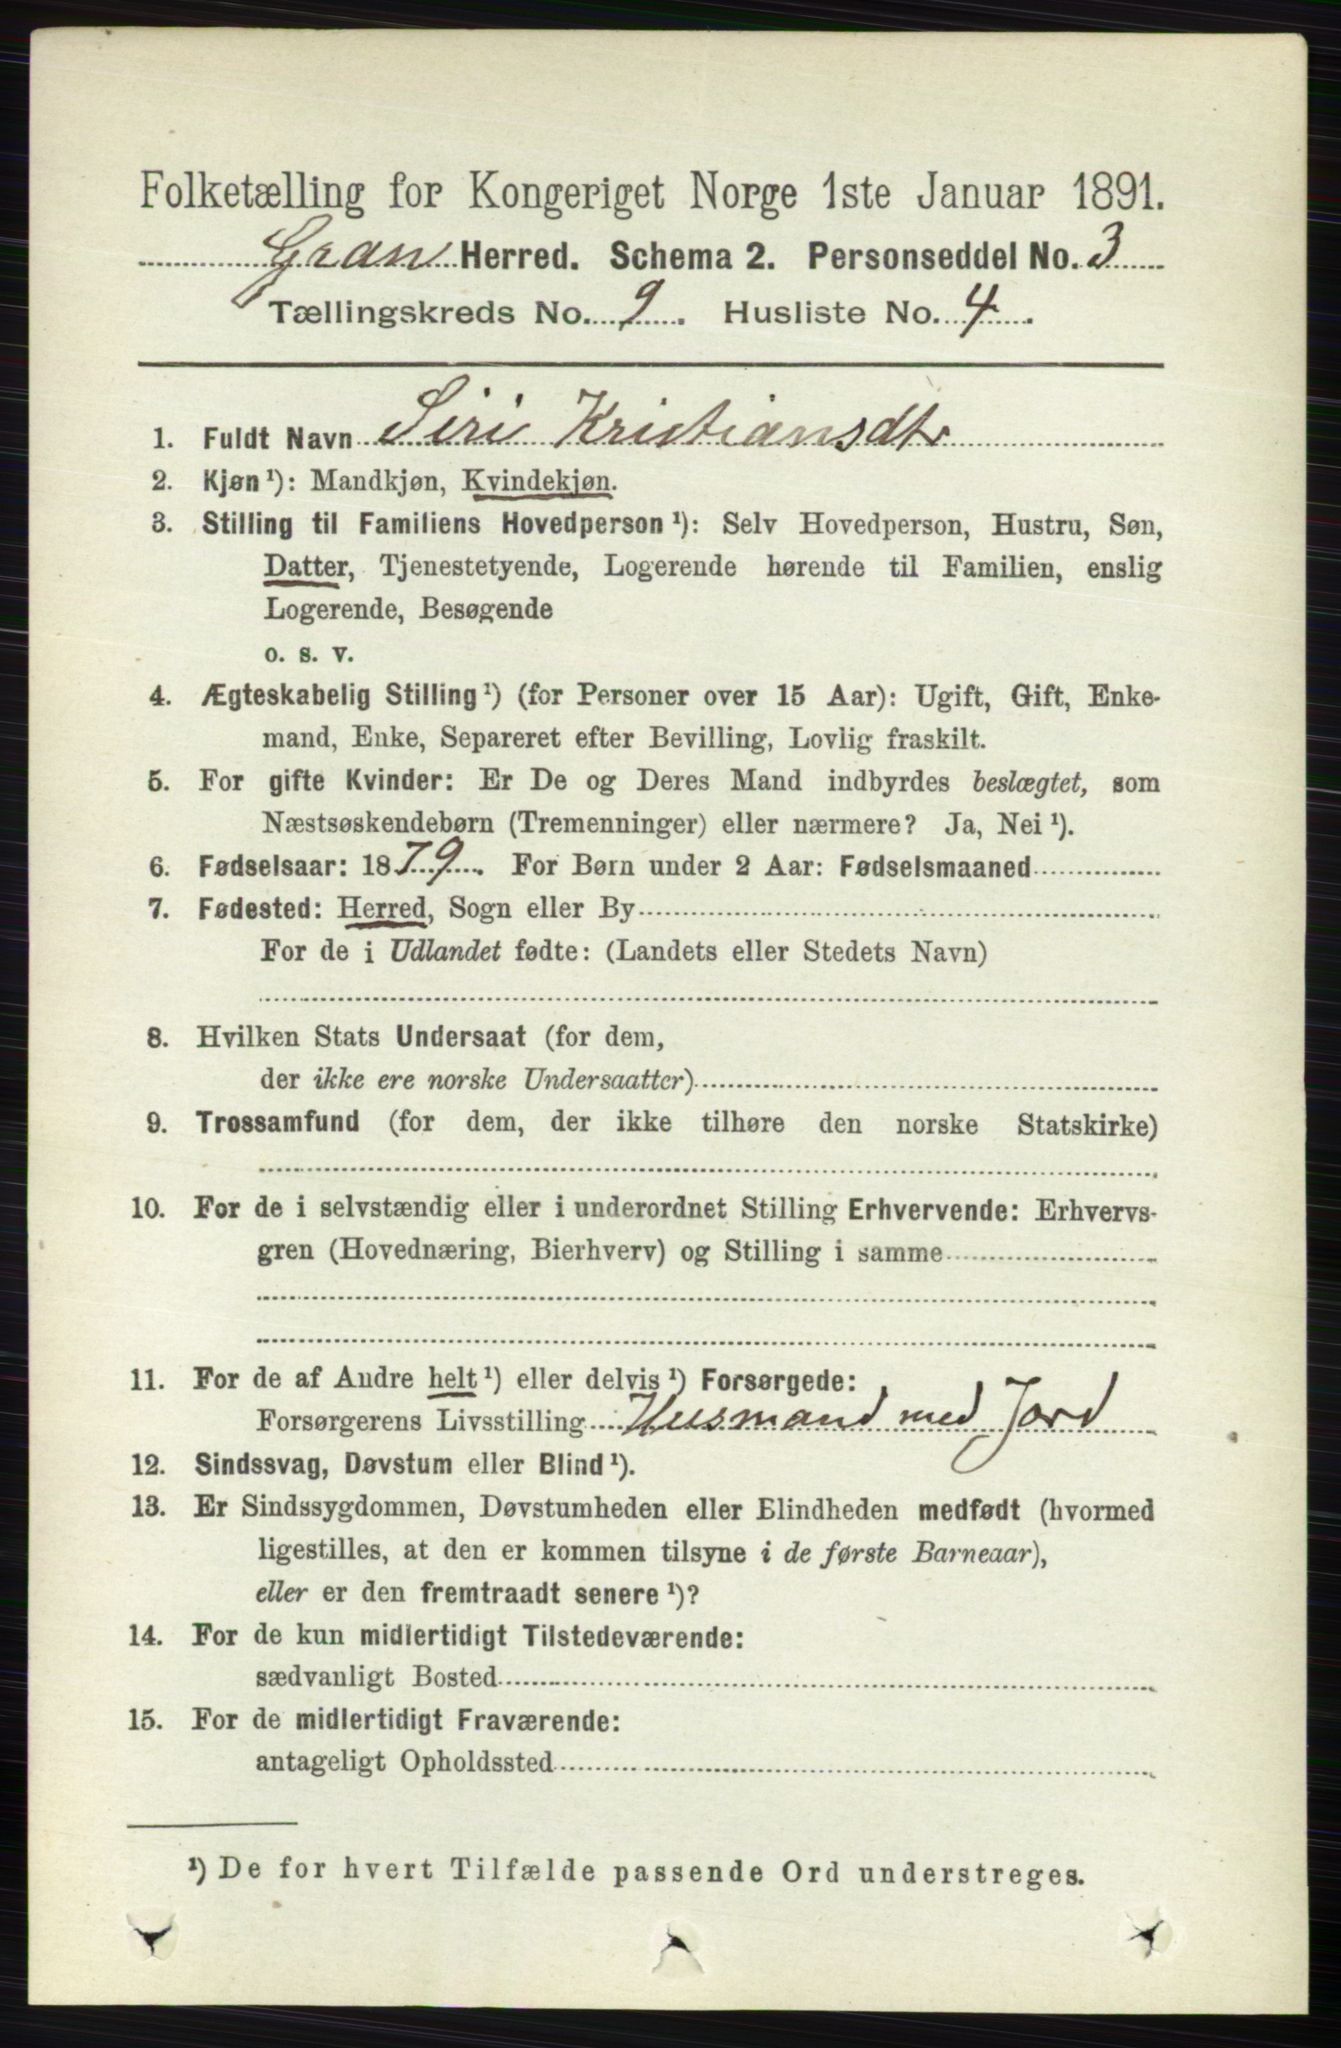 Folketælling for Kongeriget Norge 1ste Januar 1891.
Gran Herred. Schema 2. Personseddel No. 3
Tællingskreds No. 9. Husliste No. 4.
1. Fuldt Navn Siri Kristiansdtr
2. Kjøn ¹): Mandkjøn, Kvindekjøn.
3. Stilling til Familiens Hovedperson ¹): Selv Hovedperson, Hustru, Søn,
Datter, Tjenestetyende, Logerende hørende til Familien, enslig
Logerende, Besøgende
o. s. v.
4. Ægteskabelig Stilling ¹) (for Personer over 15 Aar): Ugift, Gift, Enke-
mand, Enke, Separeret efter Bevilling, Lovlig fraskilt.
5. For gifte Kvinder: Er De og Deres Mand indbyrdes beslægtet, som
Næstsøskendebørn (Tremenninger) eller nærmere? Ja, Nei ¹).
6. Fødselsaar: 1879. For Børn under 2 Aar: Fødselsmaaned
7. Fødested: Herred, Sogn eller By
For de i Udlandet fødte: (Landets eller Stedets Navn)
8. Hvilken Stats Undersaat (for dem,
der ikke ere norske Undersaatter)
9. Trossamfund (for dem, der ikke tilhøre den norske Statskirke)
10. For de i selvstændig eller i underordnet Stilling Erhvervende: Erhvervs-
gren (Hovednæring, Bierhverv) og Stilling i samme
11. For de af Andre helt ¹) eller delvis ¹) Forsørgede:
Forsørgerens Livsstilling Husmand med Jord
12. Sindssvag, Døvstum eller Blind ¹).
13. Er Sindssygdommen, Døvstumheden eller Blindheden medfødt (hvormed
ligestilles, at den er kommen tilsyne i de første Barneaar),
eller er den fremtraadt senere ¹)?
14. For de kun midlertidigt Tilstedeværende:
sædvanligt Bosted
15. For de midlertidigt Fraværende:
antageligt Opholdssted
¹) De for hvert Tilfælde passende Ord understreges.